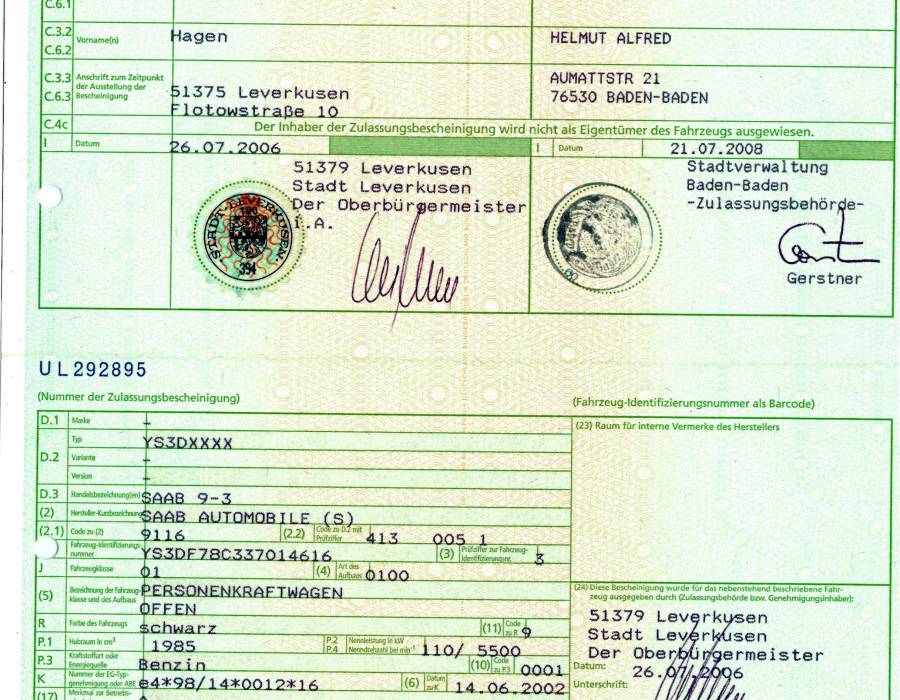 C.6.1
C.3.2 Vorname(n) Hagen HELMUT ALFRED
C.6.2
C.3.3 Anschrift zum Zeitpunkt der Ausstellung der Bescheinigung AUMATTSTR 21
C.6.3 51375 Leverkusen 76530 BADEN-BADEN
Flotowstraße 10
C.4c Der Inhaber der Zulassungsbescheinigung wird nicht als Eigentümer des Fahrzeugs ausgewiesen.
I Datum 26.07.2006 I Datum 21.07.2008
51379 Leverkusen Stadtverwaltung
Stadt Leverkusen Baden-Baden
Der Oberbürgermeister -Zulassungsbehörde-
i.A.
STADT LEVERKUSEN
394
Gerstner
UL292895
(Nummer der Zulassungsbescheinigung)
(Fahrzeug-Identifizierungsnummer als Barcode)
D.1 Marke –
(23) Raum für interne Vermerke des Herstellers
Typ YS3DXXXX
D.2 Variante –
Version –
D.3 Handelsbezeichnung(en) SAAB 9-3
(2) Hersteller-Kurzbezeichnung SAAB AUTOMOBILE (S)
(2.1) Code zu (2) 9116 (2.2) Code zu D.2 mit Prüfziffer 413 005 1
Fahrzeug-Identifizierungsnummer YS3DF78C337014616 (3) Prüfziffer zur Fahrzeug-Identifizierungsnr. 3
J Fahrzeugklasse 01 (4) Art des Aufbaus 0100
(5) Bezeichnung der Fahrzeugklasse und des Aufbaus PERSONENKRAFTWAGEN
OFFEN
R Farbe des Fahrzeugs schwarz (11) Code zu R 9
P.1 Hubraum in cm³ 1985 P.2 P.4 Nennleistung in kW Nenndrehzahl bei min-1 110/ 5500
P.3 Kraftstoffart oder Energiequelle Benzin (10) Code zu P.3 0001
K Nummer der EG-Typgenehmigung oder ABE e4*98/14*0012*16 (6) Datum zu K 14.06.2002
(17) Merkmal zur Betriebs-
(24) Diese Bescheinigung wurde für das nebenstehend beschriebene Fahrzeug ausgegeben durch (Zulassungsbehörde bzw. Genehmigungsinhaber):
51379 Leverkusen
Stadt Leverkusen
Der Oberbürgermeister
Datum: 26.07.2006
Unterschrift: